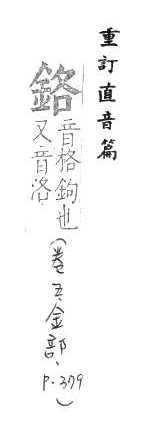 重訂直音篇
鉻音格鉤也
又音洛
(卷五、金部、
P.379)